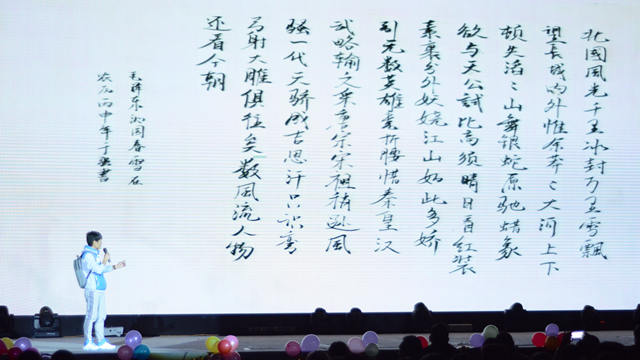 北國風光千里冰封万里雪飄
望長城内外惟余莽〻大河上下
頓失滔〻山舞銀蛇原馳蜡象
欲与天公試比高須晴日看红装
素裹分外妖娆江山如此多娇
引无数英雄竞折腰惜秦皇汉
武略输文采唐宗宋祖稍逊风
骚一代天骄成吉思汗只识弯
弓射大雕俱往矣数风流人物
还看今朝
毛泽东沁园春雪在
农历丙申年于书